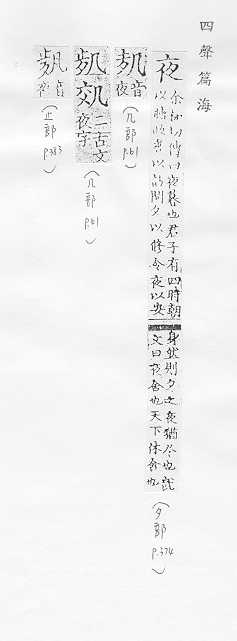 四聲篇海
夜
余射切傳曰夜暮也君子有四時朝
以聽政晝以訪問夕以修令夜以安
身然則夕之夜猶
文曰夜舍也天下休舍也
(夕部 p.374)
音夜
(几部 p.61)
二古文夜字
(几部 p.61)
音夜
(止部 p.383)